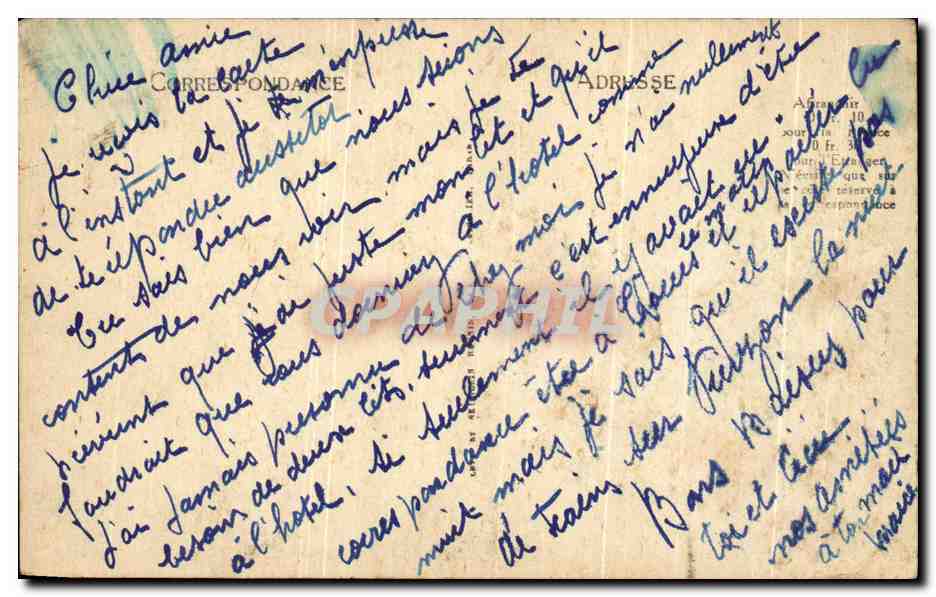 CORRESPONDANCE
ADRESSE
Chère amie
Je reçois ta carte
à l'instant et je m'empresse
de te répondre aussitôt
Tu sais bien que nous serions
contents de nous voir mais je te
préviens que j'ai juste mon lit et qu'il
faudrait que vous dormiez à l'hôtel comme
j'ai jamais personne de chez moi je n'ai nullement
besoin de deux lits, seulement c'est ennuyeux d'être
à l'hôtel, si seulement il y avait une
correspondance être à Tours le matin et repartir le
nuit mais je sais qu'il existe pas
de trains sur Vierzon la nuit.
Bons Baisers pour
toi et Cécile
nos amitiés
à ton mari
Marie
Affranchir
CPAPHIL